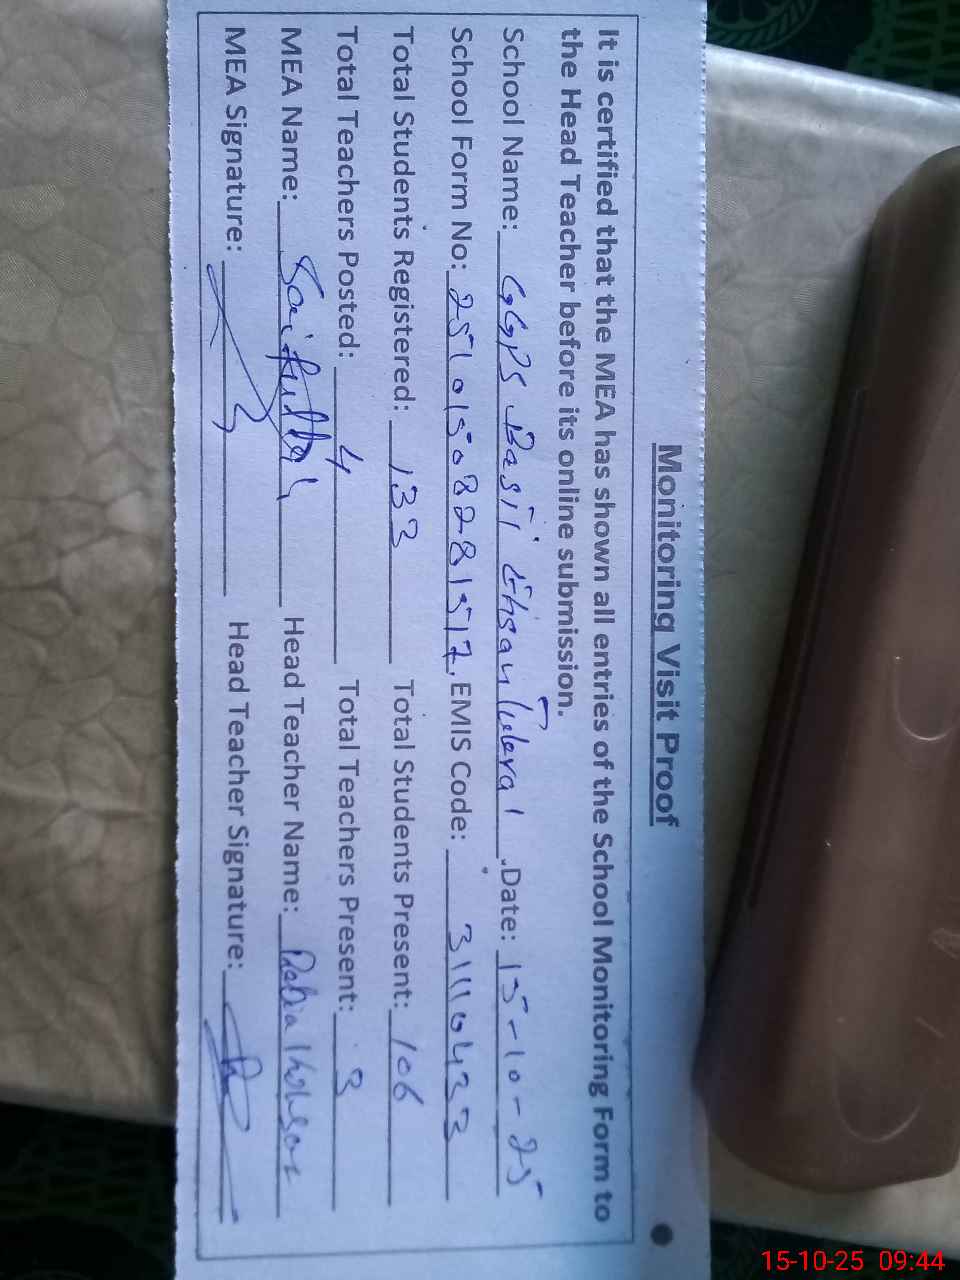 Monitoring Visit Proof
It is certified that the MEA has shown all entries of the School Monitoring Form to
the Head Teacher before its online submission.
School Name: GGPS Basti Ehsan Date: 15-10-25
School Form No: 25101508281517 EMIS Code: 31110433
Total Students Registered: 133 Total Students Present: 106
Total Teachers Posted: 4 Total Teachers Present: 3
MEA Name: Saifullah Head Teacher Name: Rabia
MEA Signature: Head Teacher Signature:
15-10-25 09:44